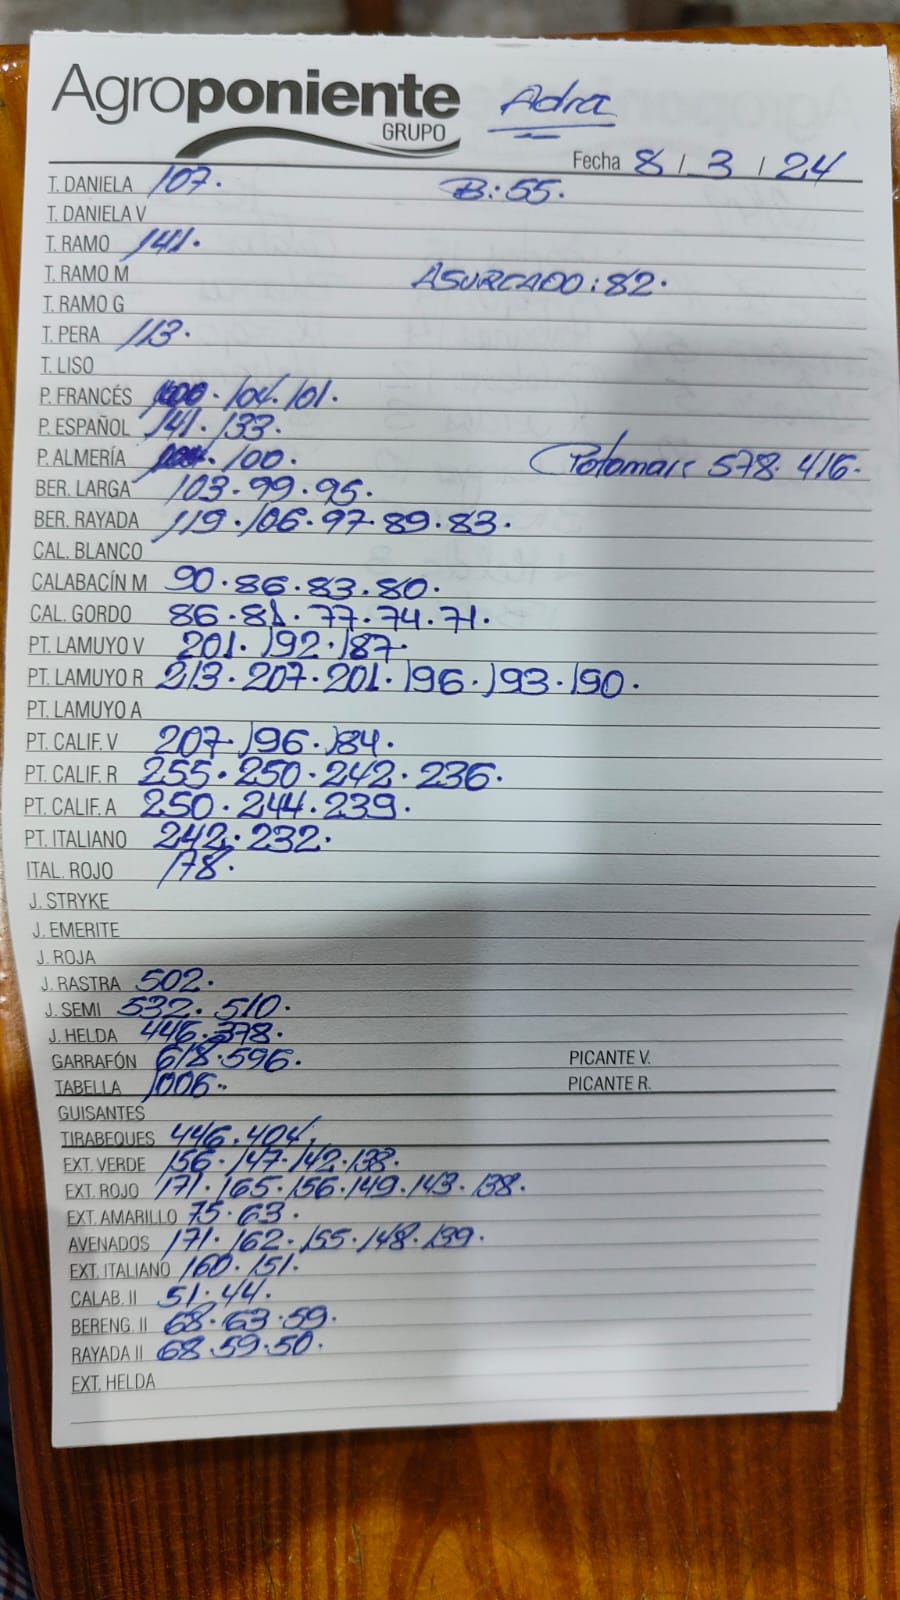 Agroponiente
GRUPO
Adra
Fecha 8 / 3 / 24
T. DANIELA 107. B: 55.
T. DANIELA V
T. RAMO 141.
T. RAMO M ASURCADO: 82.
T. RAMO G
T. PERA 113.
T. LISO
P. FRANCÉS . 104. 101.
P. ESPAÑOL 141. 133.
P. ALMERÍA . 100. Potomac 578. 416.
BER. LARGA 103. 99. 95.
BER. RAYADA 119. 106. 97. 89. 83.
CAL. BLANCO
CALABACÍN M 90. 86. 83. 80.
CAL. GORDO 86. 81. 77. 74. 71.
PT. LAMUYO V 201. 192. 187.
PT. LAMUYO R 213. 207. 201. 196. 193. 190.
PT. LAMUYO A
PT. CALIF. V 207. 196. 184.
PT. CALIF. R 255. 250. 242. 236.
PT. CALIF. A 250. 244. 239.
PT. ITALIANO 242. 232.
ITAL. ROJO 178.
J. STRYKE
J. EMERITE
J. ROJA
J. RASTRA 502.
J. SEMI 532. 510.
J. HELDA 446. 378.
GARRAFÓN 618. 596. PICANTE V.
TABELLA 1006. PICANTE R.
GUISANTES
TIRABEQUES 446. 404.
EXT. VERDE 156. 147. 142. 138.
EXT. ROJO 171. 165. 156. 149. 143. 138.
EXT. AMARILLO 75. 63.
AVENADOS 171. 162. 155. 148. 139.
EXT. ITALIANO 160. 151.
CALAB. II 51. 44.
BERENG. II 68. 63. 59.
RAYADA II 68. 59. 50.
EXT. HELDA